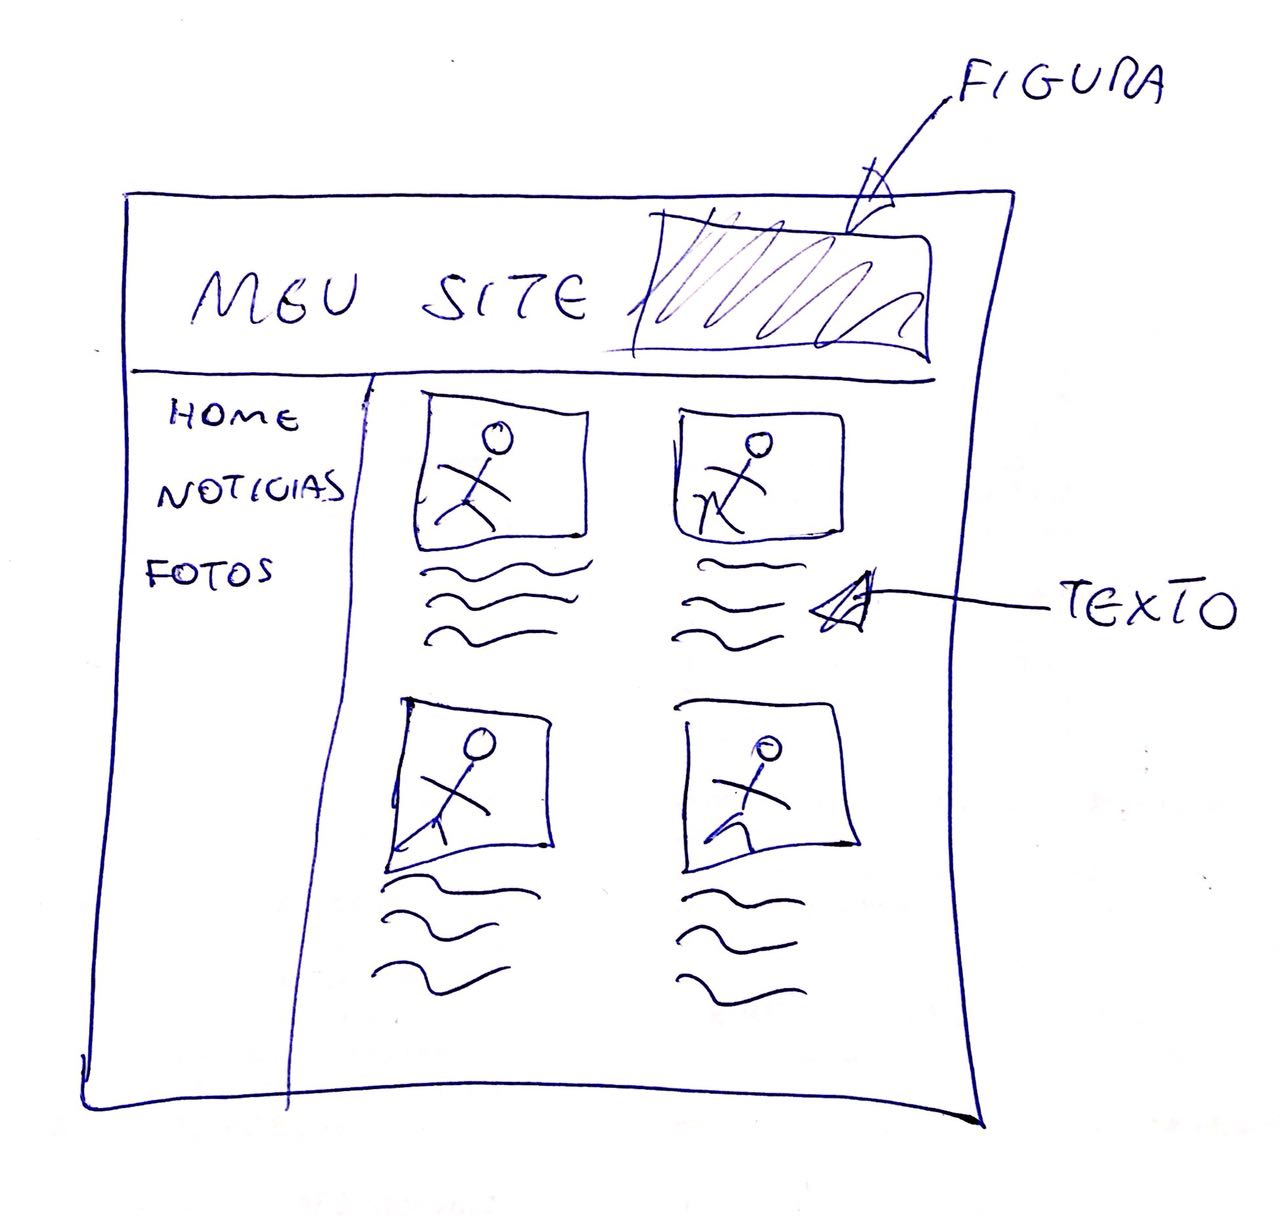 FIGURA
MEU SITE
HOME
NOTICIAS
FOTOS
TEXTO